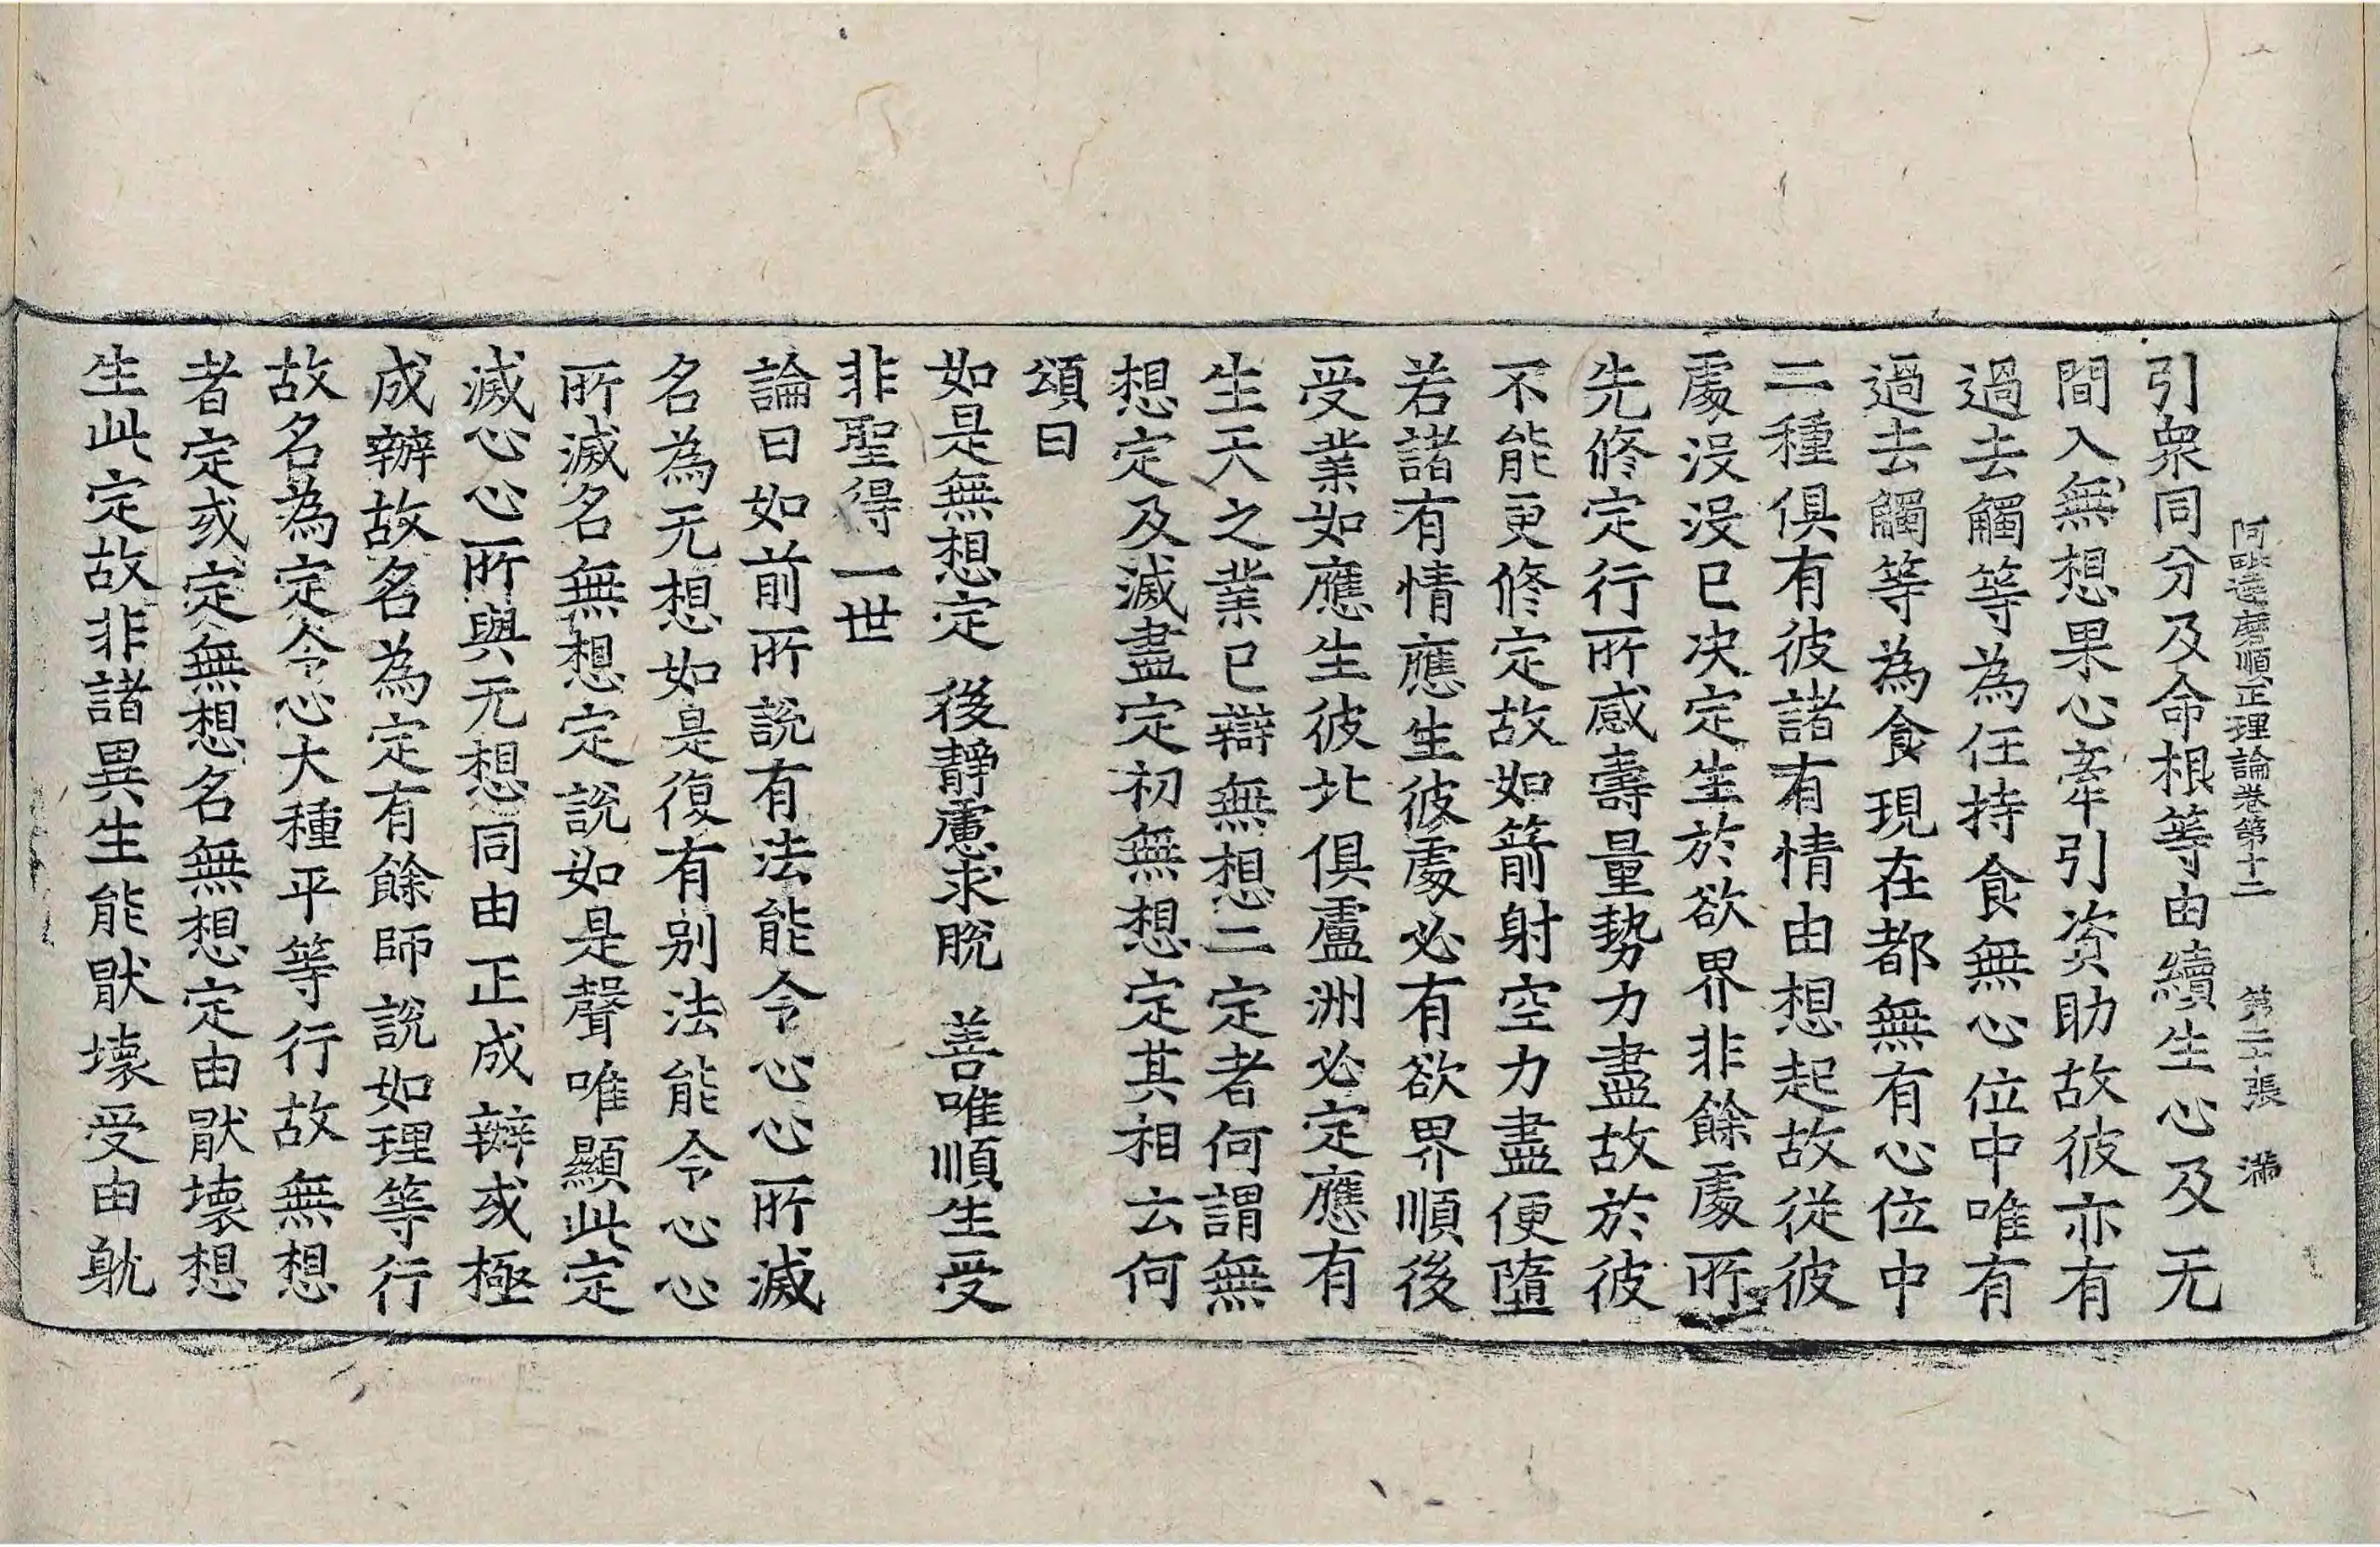 阿毗達磨順正理論卷第十二 第二十張 滿
引衆同分及命根等由續生心及无
間入無想果心牽引資助故彼亦有
過去觸等為任持食無心位中唯有
過去觸等為食現在都無有心位中
二種俱有彼諸有情由想起故從彼
處沒沒已决定生於欲界非餘處所
先修定行所感壽量勢力盡故於彼
不能更修定故如箭射空力盡便墮
若諸有情應生彼處必有欲界順後
受業如應生彼北俱盧洲必定應有
生天之業已辯無想二定者何謂無
想定及滅盡定初無想定其相云何
頌曰
如是無想定 後靜慮求脫 善唯順生受
非聖得一世
論曰如前所說有法能令心心所滅
名為无想如是復有別法能令心心
所滅名無想定說如是聲唯顯此定
滅心心所與无想同由正成辦或極
成辦故名為定有餘師說如理等行
故名為定令心大種平等行故無想
者定或定無想名無想定由猒壞想
生此定故非諸異生能猒壞受由躭